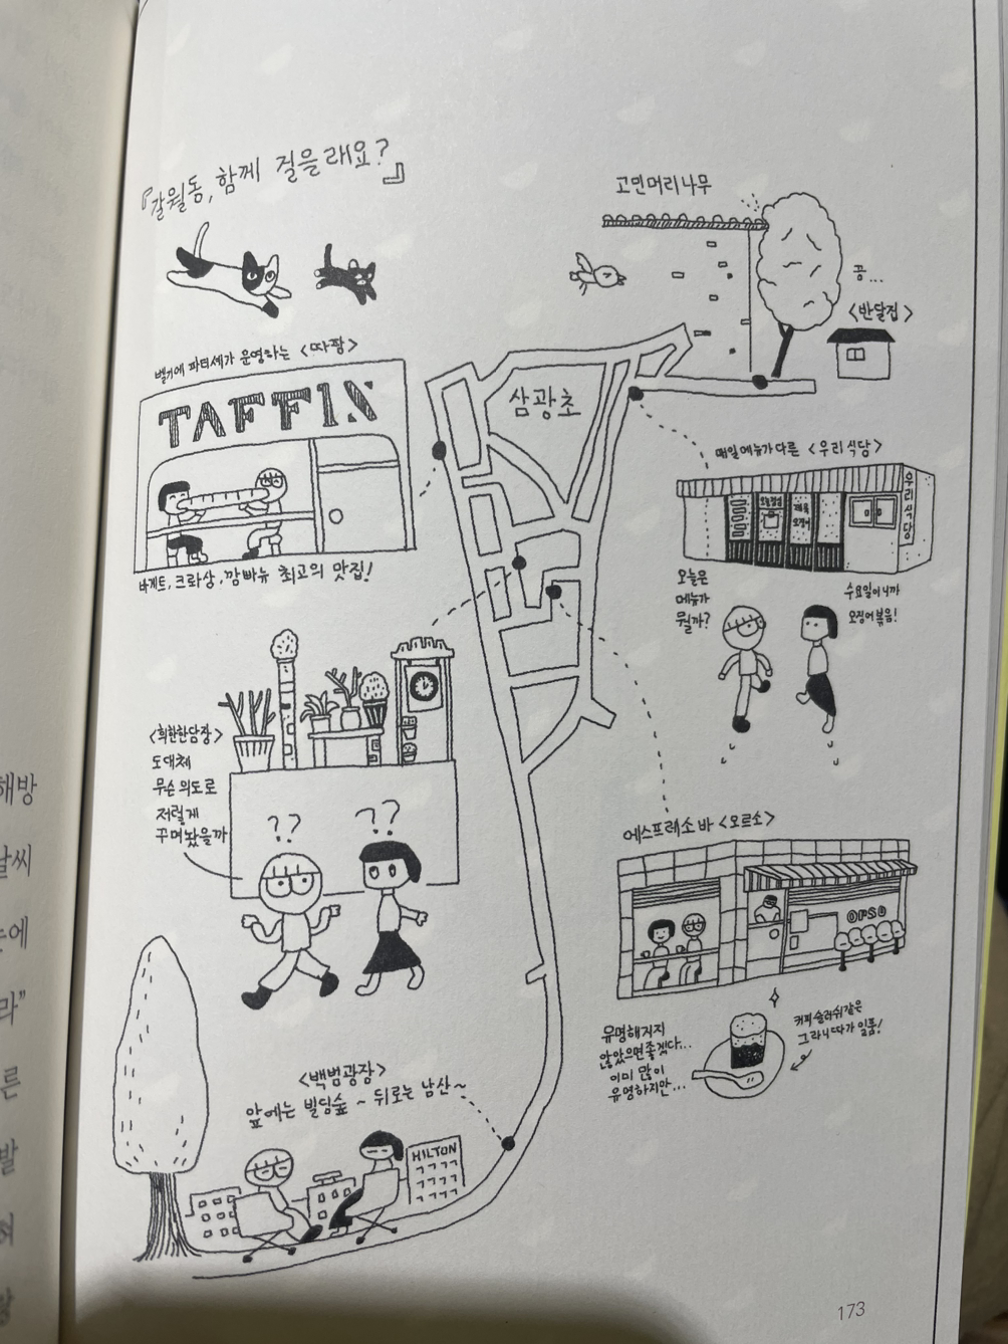 『갈월동, 함께 걸을래요?』
고민머리나무
끙...
<반달집>
벨기에 파티셰가 운영하는 <따팡>
TAFFIN
바게트, 크롸상, 깜빠뉴 최고의 맛집!
삼광초
매일 메뉴가 다른 <우리식당>
우리식당
오늘점심
제육
오징어
오늘은
메뉴가
뭘까?
수요일이니까
오징어볶음!
<희한한담장>
도대체
무슨 의도로
저렇게
꾸며놨을까
??
??
에스프레소 바 <오르소>
ORSO
유명해지지
않았으면좋겠다...
이미 많이
유명하지만...
커피슬러쉬같은
그라니따가 일품!
<백범광장>
앞에는 빌딩숲 ~ 뒤로는 남산~
HILTON
해방
날씨
에
라"
른
발
173